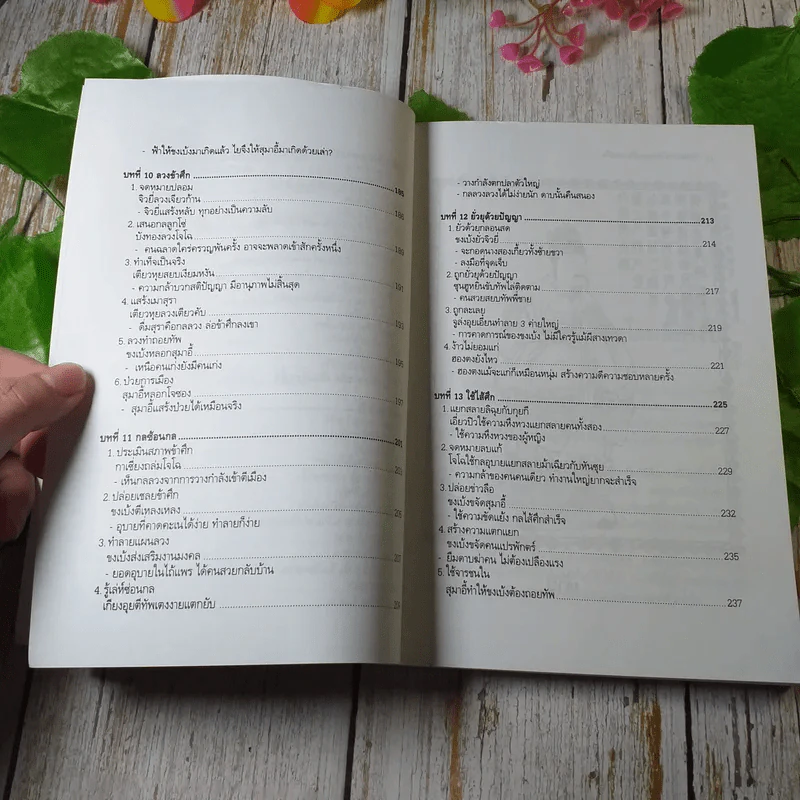 - ฟ้าให้ขงเบ้งมาเกิดแล้ว ไยจึงให้สุมาอี้มาเกิดด้วยเล่า?
บทที่ 10 ลวงข้าศึก
1. จดหมายปลอม
จิวยี่ลวงเจียวก้าน
- จิวยี่แสร้งหลับ ทุกอย่างเป็นความลับ
2. เสนอกลลูกโซ่
บังทองลวงโจโฉ
- คนฉลาดใคร่ครวญพันครั้ง อาจจะพลาดเข้าสักครั้งหนึ่ง
3. ทำเท็จเป็นจริง
เตียวหุยสยบเงียมหงัน 191
- ความกล้าบวกสติปัญญา มีอานุภาพไม่สิ้นสุด
4. แสร้งเมาสุรา
เตียวหุยลวงเตียวคับ 193
- ดื่มสุราคือกลลวง ล่อข้าศึกลงเขา
5. ลวงทำถอยทัพ
ขงเบ้งหลอกสุมาอี้ 195
- เหนือคนเก่งยังมีคนเก่ง
6. ป่วยการเมือง
สุมาอี้หลอกโจซอง 197
- สุมาอี้แสร้งป่วยได้เหมือนจริง
บทที่ 11 กลซ้อนกล 201
1. ประเมินสภาพข้าศึก
กาเซี่ยงถล่มโจโฉ
- เห็นกลลวงจากการวางกำลังเข้าตีเมือง
2. ปล่อยเชลยข้าศึก
ขงเบ้งตีเหลงเหลง
- อุบายที่คาดคะเนได้ง่าย ทำลายก็ง่าย
3. ทำลายแผนลวง
ขงเบ้งส่งเสริมงานมงคล
- ยอดอุบายในไถ้แพร ได้คนสวยกลับบ้าน
4. รู้เล่ห์ซ้อนกล
เกียงอุยตีทัพเตงงายแตกยับ
- วางกำลังตกปลาตัวใหญ่
- กลลวงลวงได้ไม่ง่ายนัก ดาบนั้นคืนสนอง
บทที่ 12 ยั่วยุด้วยปัญญา 213
1. ยั่วด้วยกลอนสด
ขงเบ้งยั่วจิวยี่ 214
- จะกอดนางสองเกี้ยวทั้งซ้ายขวา
- ลงมือที่จุดเจ็บ
2. ถูกยั่วยุด้วยปัญญา
ซุนฮูหยินขับทัพไล่ติดตาม 217
- คนสวยสยบทัพพี่ชาย
3. ถูกละเลย
จูล่งอุยเอียนทำลาย 3 ค่ายใหญ่ 219
- การคาดการณ์ของขงเบ้ง ไม่มีใครรู้แม้ผีสางเทวดา
4. ง้าวไม่ยอมแก่
ฮองตงยังไหว 221
- ฮองตงแม้จะแก่ก็เหมือนหนุ่ม สร้างความดีความชอบหลายครั้ง
บทที่ 13 ใช้ไส้ศึก 225
1. แยกสลายลิฉุยกับกุยกี
เอี่ยวปิวใช้ความหึงหวงแยกสลายคนทั้งสอง 227
- ใช้ความหึงหวงของผู้หญิง
2. จดหมายลบแก้
โจโฉใช้กลอุบายแยกสลายม้าเฉียวกับหันซุย 229
- ความกล้าของคนคนเดียว ทำงานใหญ่ยากจะสำเร็จ
3. ปล่อยข่าวลือ
ขงเบ้งขจัดสุมาอี้ 232
- ใช้ความขัดแย้ง กลไส้ศึกสำเร็จ
4. สร้างความแตกแยก
ขงเบ้งขจัดคนแปรพักตร์ 235
- ยืมดาบฆ่าคน ไม่ต้องเปลืองแรง
5. ใช้จารชนใน
สุมาอี้ทำให้ขงเบ้งต้องถอยทัพ 237